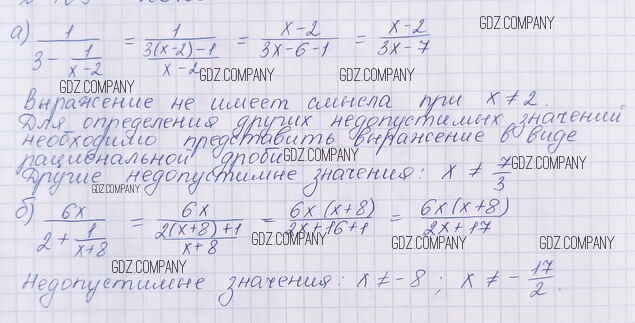 а) 1/(3 - 1/(x-2)) = 1/((3(x-2)-1)/(x-2)) = (x-2)/(3x-6-1) = (x-2)/(3x-7) GDZ.COMPANY
GDZ.COMPANY GDZ.COMPANY GDZ.COMPANY
Выражение не имеет смысла при x ≠ 2.
Для определения других недопустимых значений
необходимо представить выражение в виде
рациональной дроби GDZ.COMPANY
Другие недопустимые значения: x ≠ 7/3 GDZ.COMPANY
GDZ.COMPANY
б) 6x/(2 + 1/(x+8)) = 6x/((2(x+8)+1)/(x+8)) = 6x(x+8)/(2x+16+1) = 6x(x+8)/(2x+17)
GDZ.COMPANY GDZ.COMPANY GDZ.COMPANY
GDZ.COMPANY
Недопустимые значения: x ≠ -8; x ≠ -17/2.